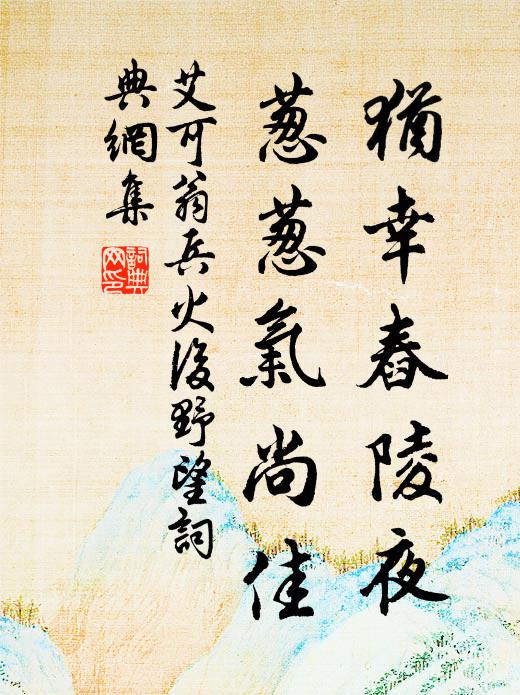 猶幸舂陵夜
葱葱氣尚佳
艾可翁兵火後野望詞
典網集
詞典
网印